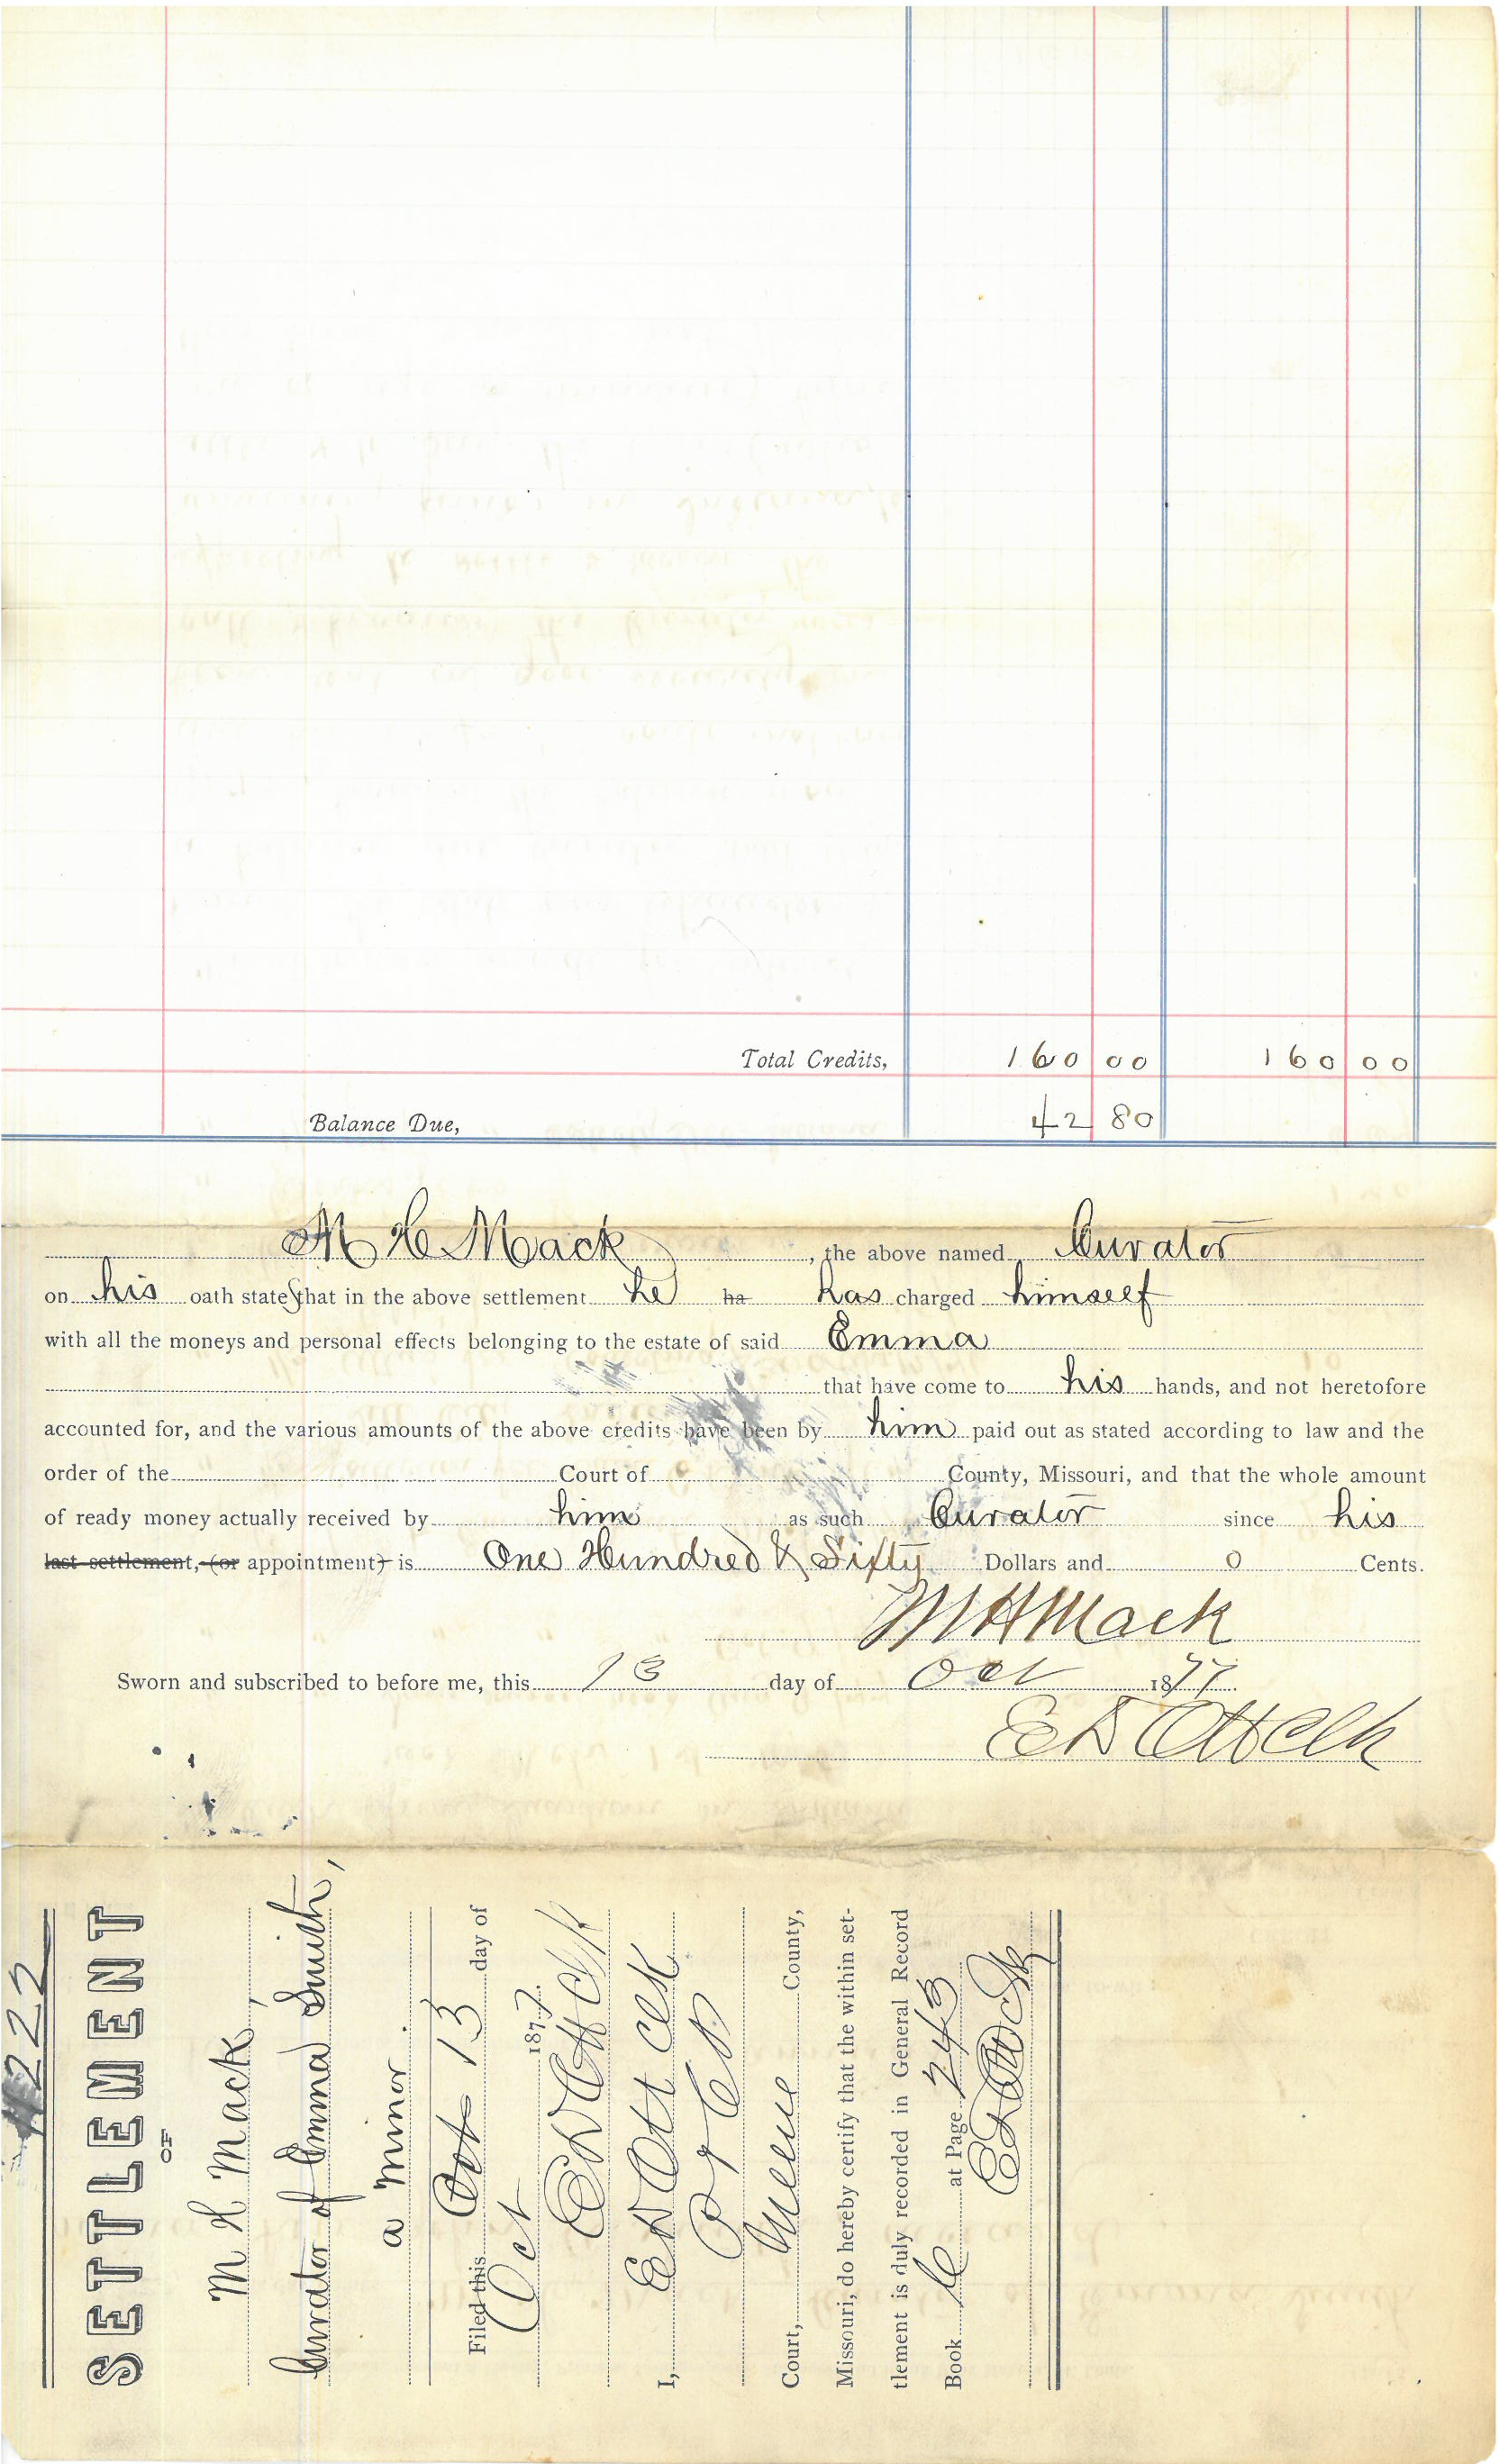 Total Credits, 160 00 160 00
Balance Due, 42 80
M H Mack, the above named Curator
on his oath states that in the above settlement he ha has charged himself
with all the moneys and personal effects belonging to the estate of said Emma
that have come to his hands, and not heretofore
accounted for, and the various amounts of the above credits have been by him paid out as stated according to law and the
order of the Court of County, Missouri, and that the whole amount
of ready money actually received by him as such Curator since his
last settlement, (or appointment) is One Hundred & Sixty Dollars and 0 Cents.
M H Mack
Sworn and subscribed to before me, this 13 day of Oct 1877.
222
SETTLEMENT
OF
M H Mack,
Curator of Emma Smith,
a minor.
Filed this Oct 13 day of
Oct 1877.
I,
Court, County,
Missouri, do hereby certify that the within set-
tlement is duly recorded in General Record
Book at Page 243